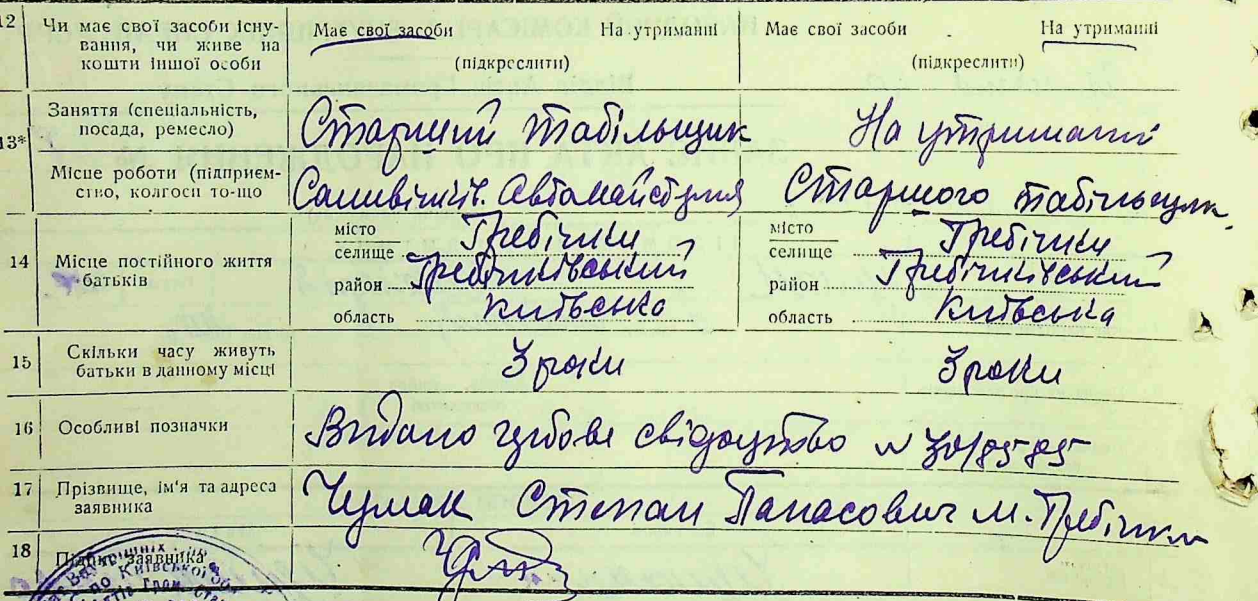 12 Чи має свої засоби існування, чи живе на кошти іншої особи
Має свої засоби На утриманні
(підкреслити)
Має свої засоби На утриманні
(підкреслити)
13* Заняття (спеціальність, посада, ремесло)
Старший табільщик
На утриманні
Місце роботи (підприємство, колгосп то-що
Автомайстерня
Старшого табільщик
14 Місце постійного життя батьків
місто
селище Гребінки
район Гребінківський
область Київська
місто
селище Гребінки
район Гребінківський
область Київська
15 Скільки часу живуть батьки в данному місці
3 роки
3 роки
16 Особливі позначки
Видано свідоцтво
17 Прізвище, ім'я та адреса заявника
Чумак Степан Панасович м. Гребінки
18 Підпис заявника